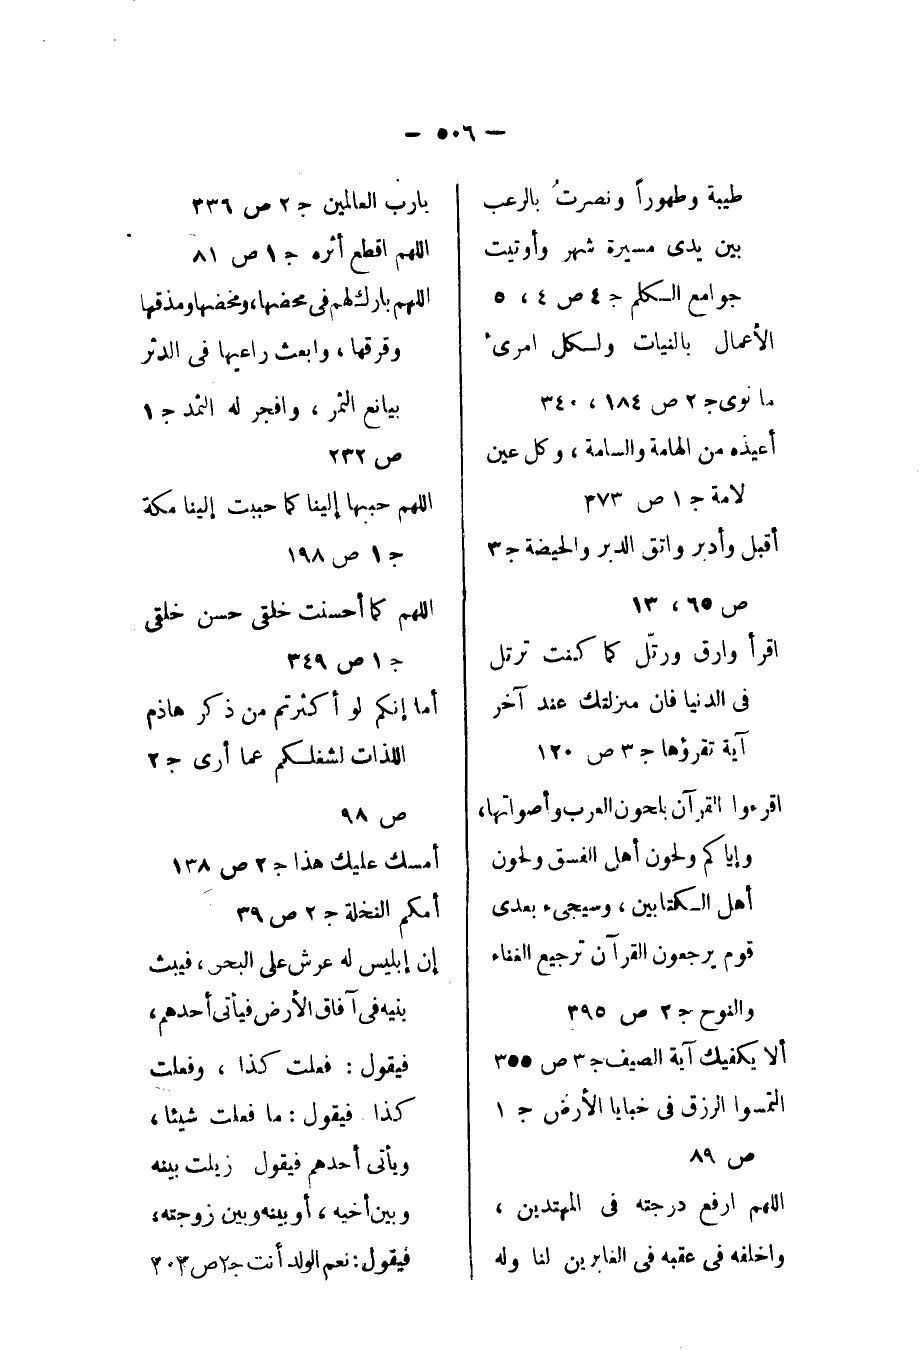 — ٥٠٦ —
طيبة وطهوراً ونصرتُ بالرعب
بين يدى مسيرة شهر وأوتيت
جوامع الكلم جـ ٤ ص ٤ ، ٥
الأعمال بالنيات ولكل امرىء
ما نوى جـ ٢ ص ١٨٤ ، ٣٤٠
أعيذه من الهامة والسامة ، وكل عين
لامة جـ ١ ص ٣٧٣
أقبل وأدبر واتق الدبر والحيضة جـ ٣
ص ٦٥ ، ١٣
اقرأ وارق ورتّل كما كنت ترتل
فى الدنيا فان منزلتك عند آخر
آية تقرؤها جـ ٣ ص ١٢٠
اقرءوا القرآن بلحون العرب وأصواتها،
وإياكم ولحون أهل الفسق ولحون
أهل الكتابين ، وسيجىء بعدى
قوم يرجعون القرآن ترجيع الغناء
والنوح جـ ٢ ص ٣٩٥
ألا يكفيك آية الصيف جـ ٣ ص ٣٥٥
التمسوا الرزق فى خبايا الأرض جـ ١
ص ٨٩
اللهم ارفع درجته فى المهتدين ،
واخلفه فى عقبه فى الغابرين لنا وله
يارب العالمين جـ ٢ ص ٣٣٦
اللهم اقطع أثره جـ ١ ص ٨١
اللهم بارك لهم فى محضها، ومخضها ومذقها
وفرقها ، وابعث راعيها فى الدثر
بيانع الثمر ، وافجر له الثمد جـ ١
ص ٢٣٢
اللهم حببها إلينا كما حببت إلينا مكة
جـ ١ ص ١٩٨
اللهم كما أحسنت خلقى حسن خلقى
جـ ١ ص ٣٤٩
أما إنكم لو أكثرتم من ذكر هاذم
اللذات لشغلكم عما أرى جـ ٢
ص ٩٨
أمسك عليك هذا جـ ٢ ص ١٣٨
أمكم النخلة جـ ٢ ص ٣٩
إن إبليس له عرش على البحر ، فيبث
بنيه فى آفاق الأرض فيأتى أحدهم،
فيقول : فعلت كذا ، وفعلت
كذا فيقول : ما فعلت شيئا ،
ويأتى أحدهم فيقول زيلت بينه
وبين أخيه ، أو بينه وبين زوجته،
فيقول: نعم الولد أنت جـ ٢ ص ٣٠٣